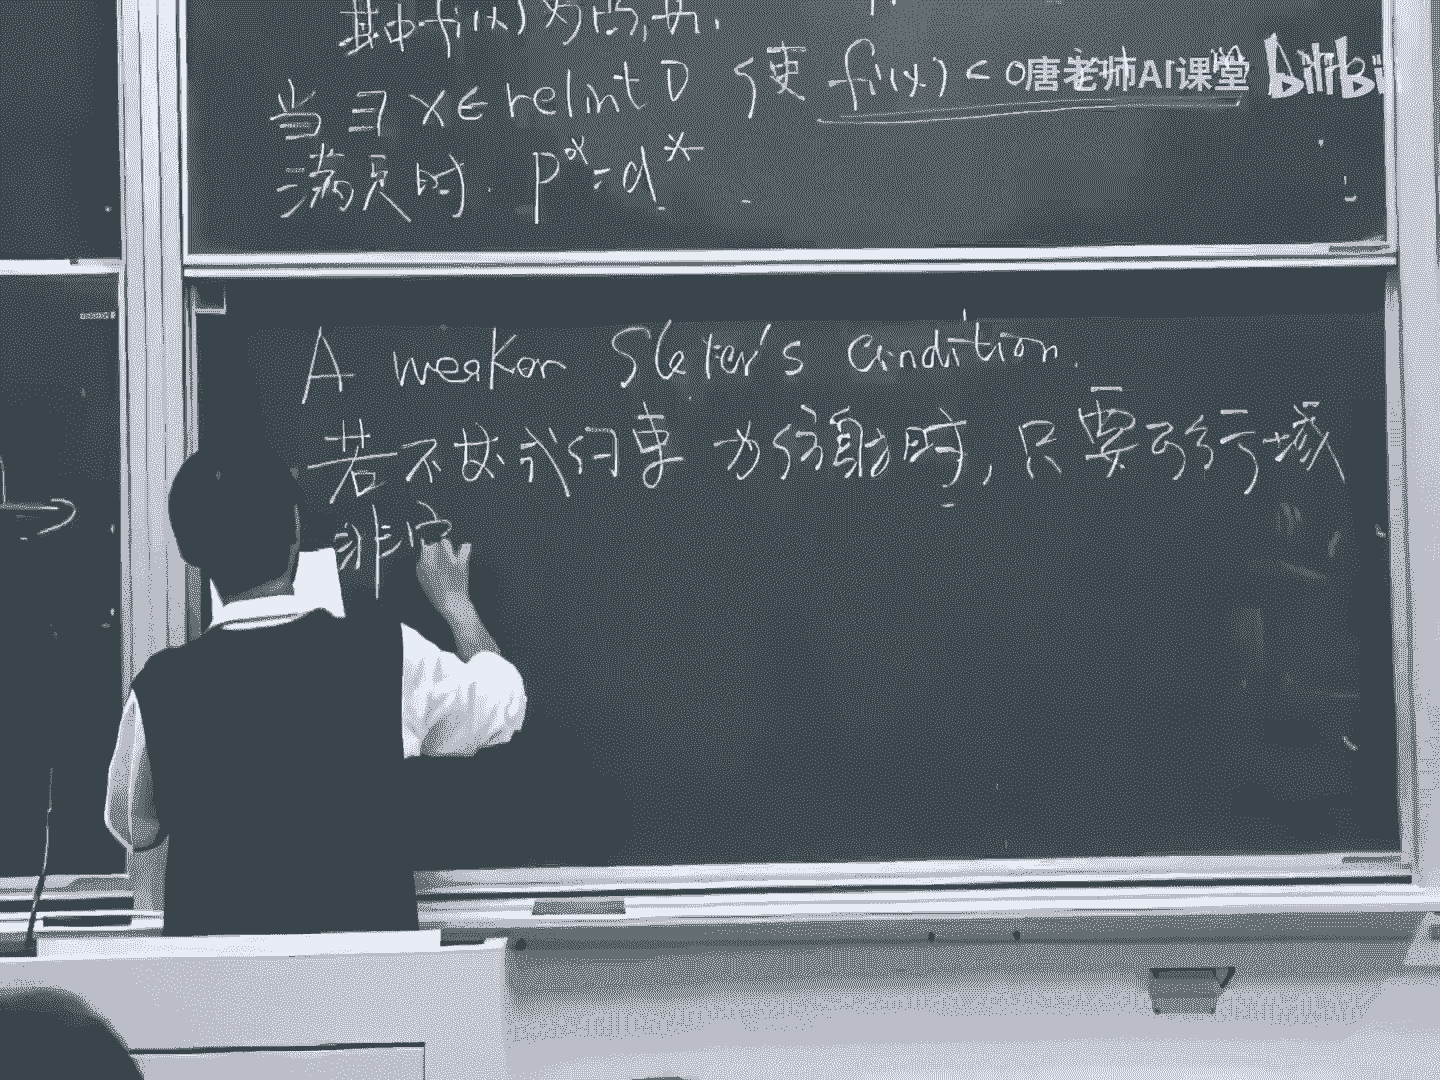 其中fi(x)为凸,
当∃ x∈ relint D 使 fi(x) < 0
满足时. p*=d*
唐老师AI课堂 bilibili
A weaker Slater's condition.
若不等式约束 为仿射时, 只要可行域
非空